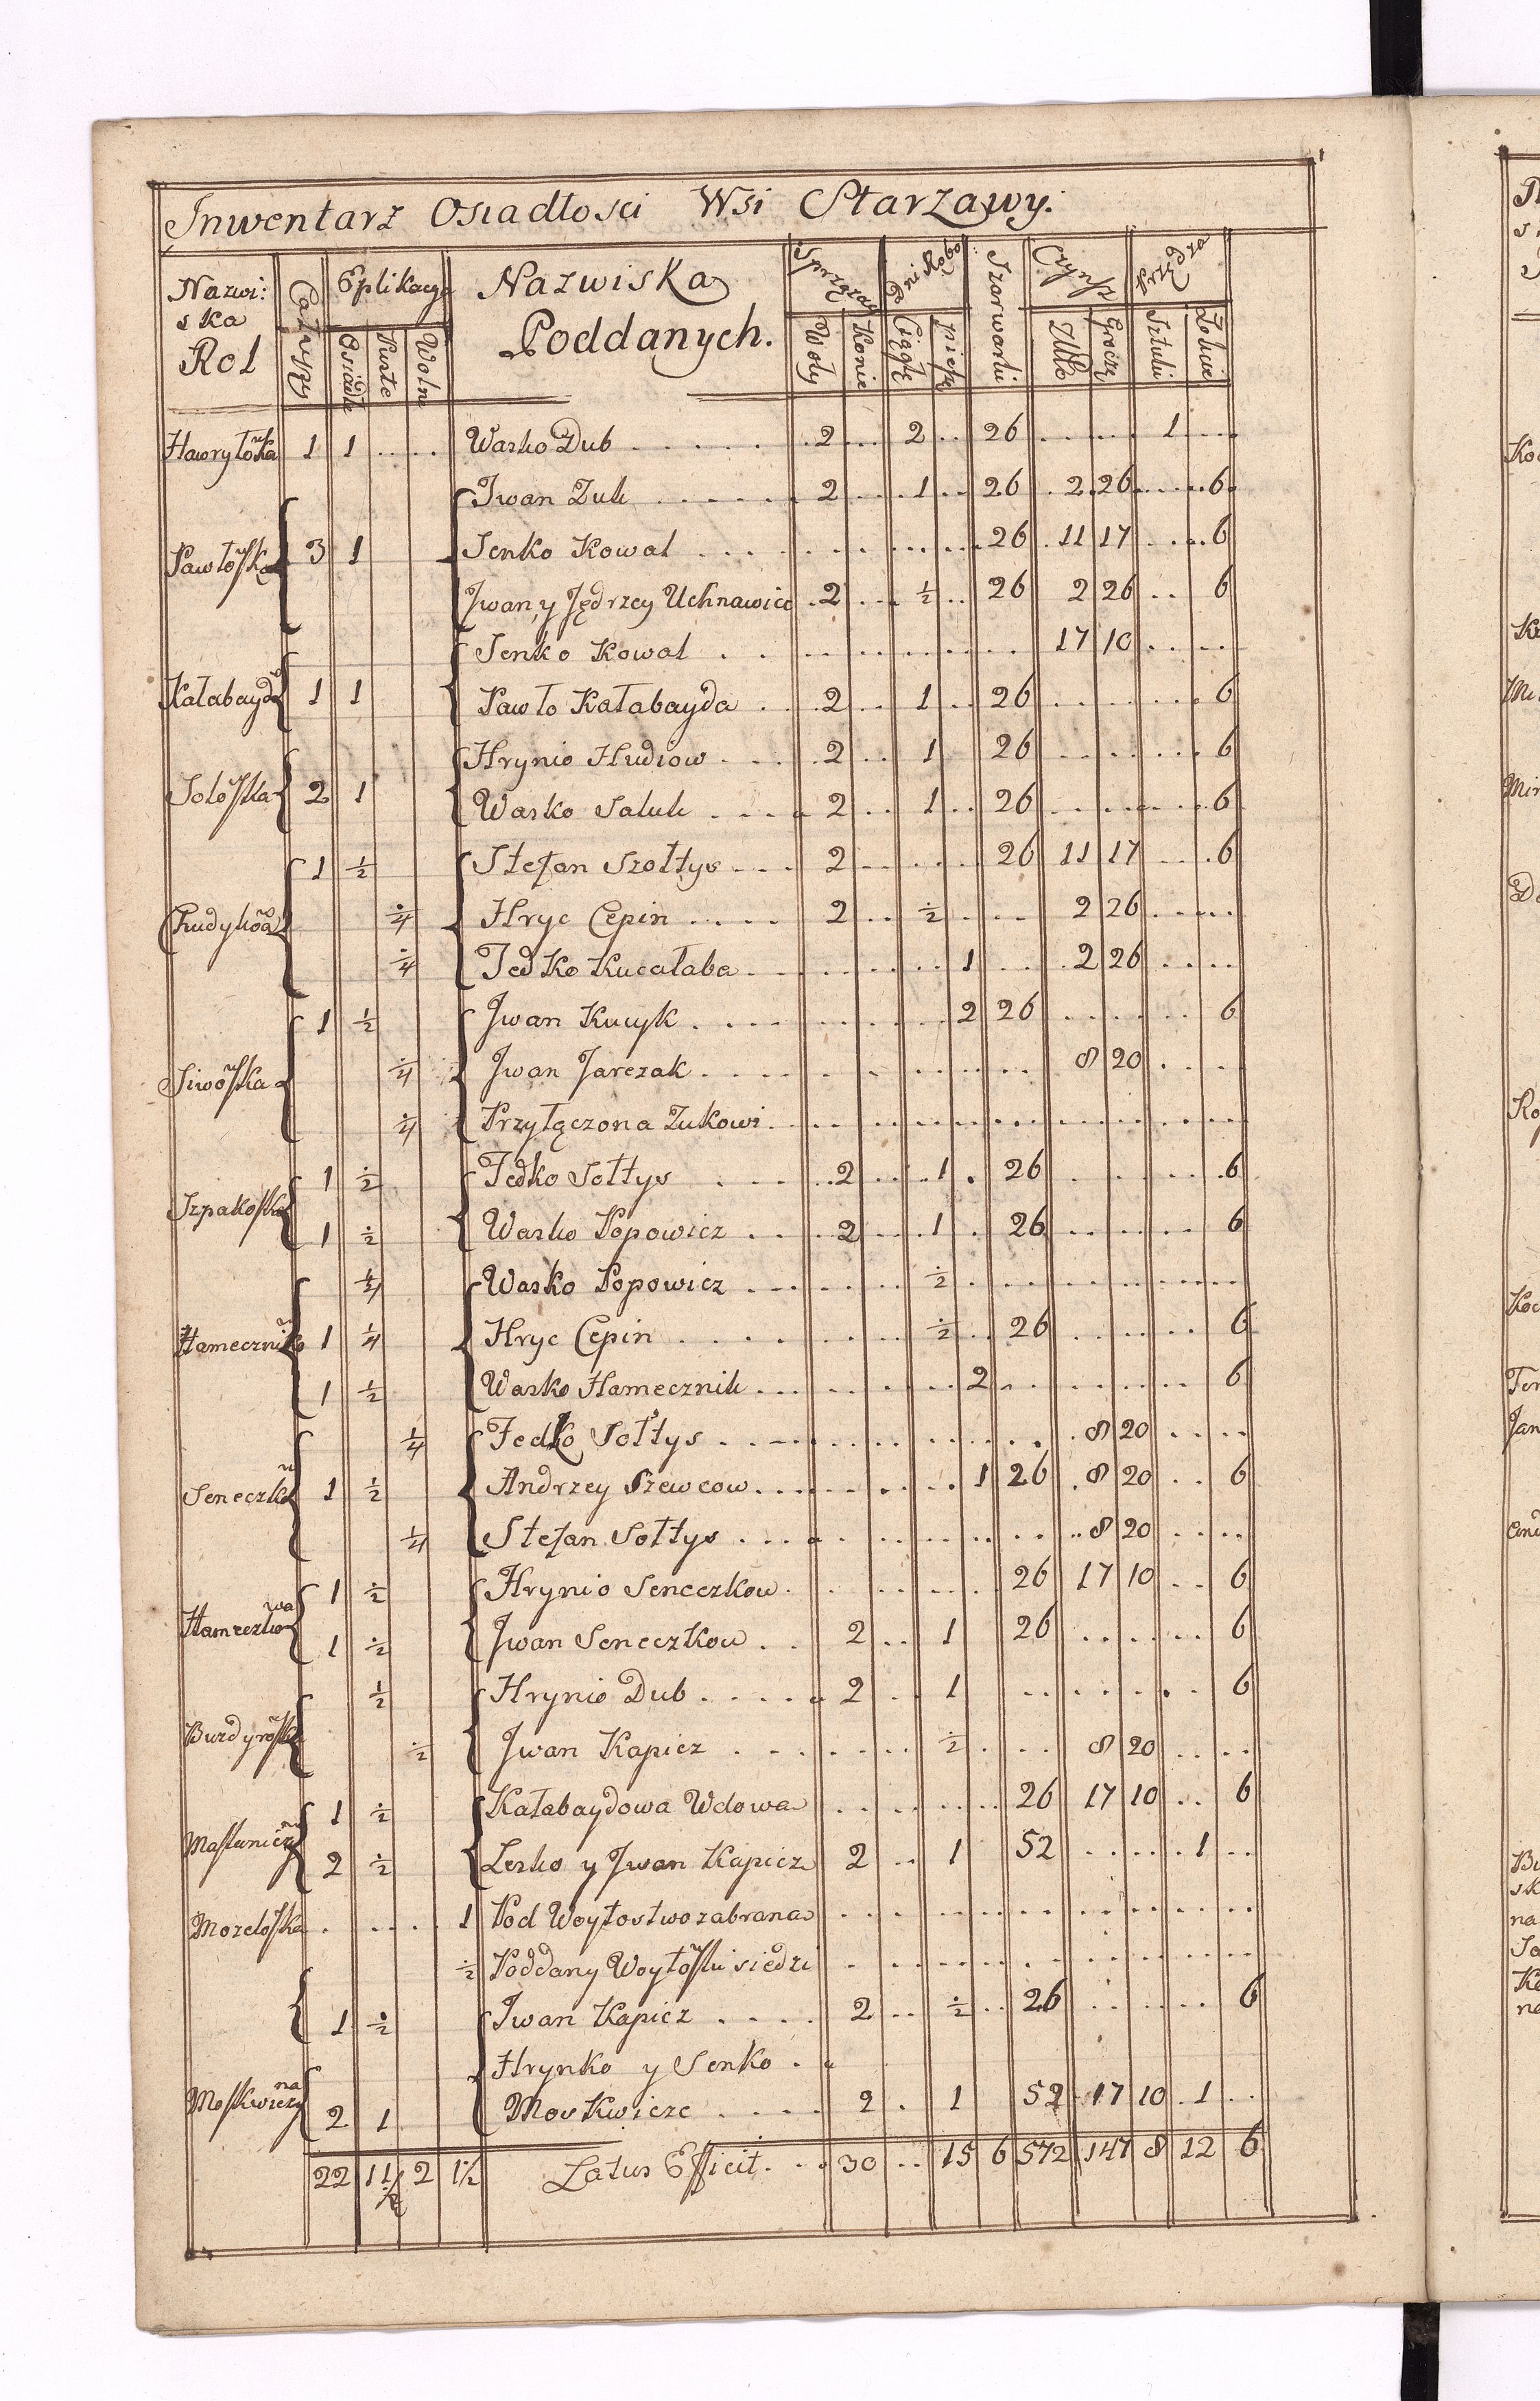 Inwentarz Osiadłosci Wsi Starzawy.
Nazwi: ska Rol | Chałupy | Eplikacya | Nazwiska Poddanych. | Sprzężay | Dni Robo | Szarwarki | Czynsz | Przędza
Osiadłe | Puste | Wolne | Woły | Konie | Ciągłe | piesze | Złło | Grosze | Sztuki | Łokcie
Hawryłoska 1 1 .... Wasko Dub ..... 2 ... 2 .. 26 ..... 1 ...
Iwan Zuk ..... 2 ... 1 .. 26 . 2 26 ..... 6
Pawłoska 3 1 Senko Kowal ..... 26 . 11 17 ..... 6
Jwan y Jędrzey Uchnawice . 2 ... ½ .. 26 2 26 .. 6
Senko Kowal ..... 17 10 .....
Kałabayda 1 1 Pawło Kałabayda . 2 .. 1 .. 26 ..... 6
Hrynio Hudiow .... 2 .. 1 26 ..... 6
Soloska 2 1 Wasko Saluk .... 2 .. 1 .. 26 ..... 6
1 ½ Stefan Szołtys ... 2 ..... 26 11 17 ... 6
Chudykowa ¼ Hryc Cepin .... 2 .. ½ .... 2 26 .....
¼ Fedko Kucałaba ..... 1 ... 2 26 ....
1 ½ Jwan Kucyk ..... 2 26 ..... 6
Siwoska ¼ Jwan Jarczak ..... 8 20 ....
¼ Przyłączona Zukowi .....
Szpakoska 1 ½ Fedko Sołtys ... 2 ... 1 . 26 ..... 6
1 ½ Wasko Popowicz ... 2 ... 1 . 26 ..... 6
¼ Wasko Popowicz ..... ½ .....
Hamecznik 1 ¼ Hryc Cepin ..... ½ .. 26 ..... 6
1 ½ Wasko Hamecznik ..... 2 ..... 6
¼ Fedko Sołtys ..... 8 20 ....
Seneczko 1 ½ Andrzey Szewcow ..... 1 26 . 8 20 .. 6
¼ Stefan Sołtys ..... 8 20 ....
1 ½ Hrynio Seneczkow ..... 26 17 10 .. 6
Hamrezkowa 1 ½ Jwan Seneczkow .. 2 .. 1 26 ..... 6
½ Hrynio Dub ..... 2 .. 1 ..... 6
½ Jwan Kapicz ..... ½ .... 8 20 ....
1 ½ Kałabaydowa Wdowa ..... 26 17 10 .. 6
2 ½ Lesko y Jwan Kapicz 2 .. 1 52 ..... 1 ..
Mozeloska ..... 1 Pod Woytostwo zabrana .....
½ Poddany Woytosku siedzi .....
1 ½ Iwan Kapicz .... 2 .. ½ .. 26 ..... 6
Hrynko y Senko ..
Moskwiczyna 2 1 Moskwicze .... 2 . 1 52 17 10 . 1 ..
22 11½ 2 1½ Latus Efficit ... 30 .. 15 6 572 147 8 12 6